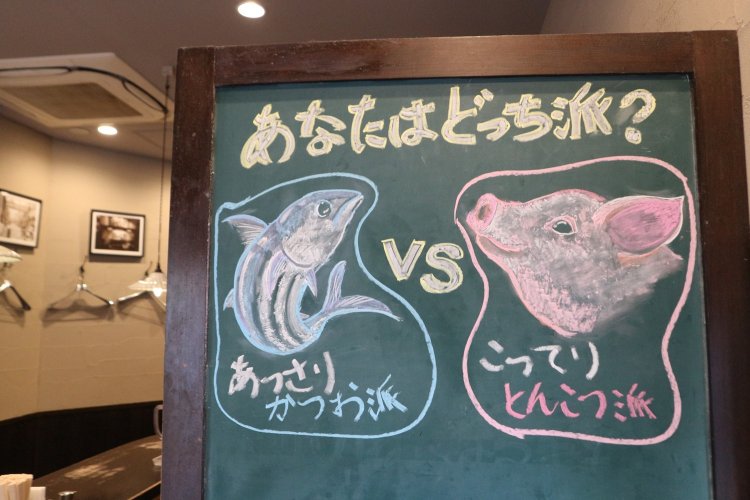 あなたはどっち派?
vs
あっさり
かつお派
こってり
とんこつ派